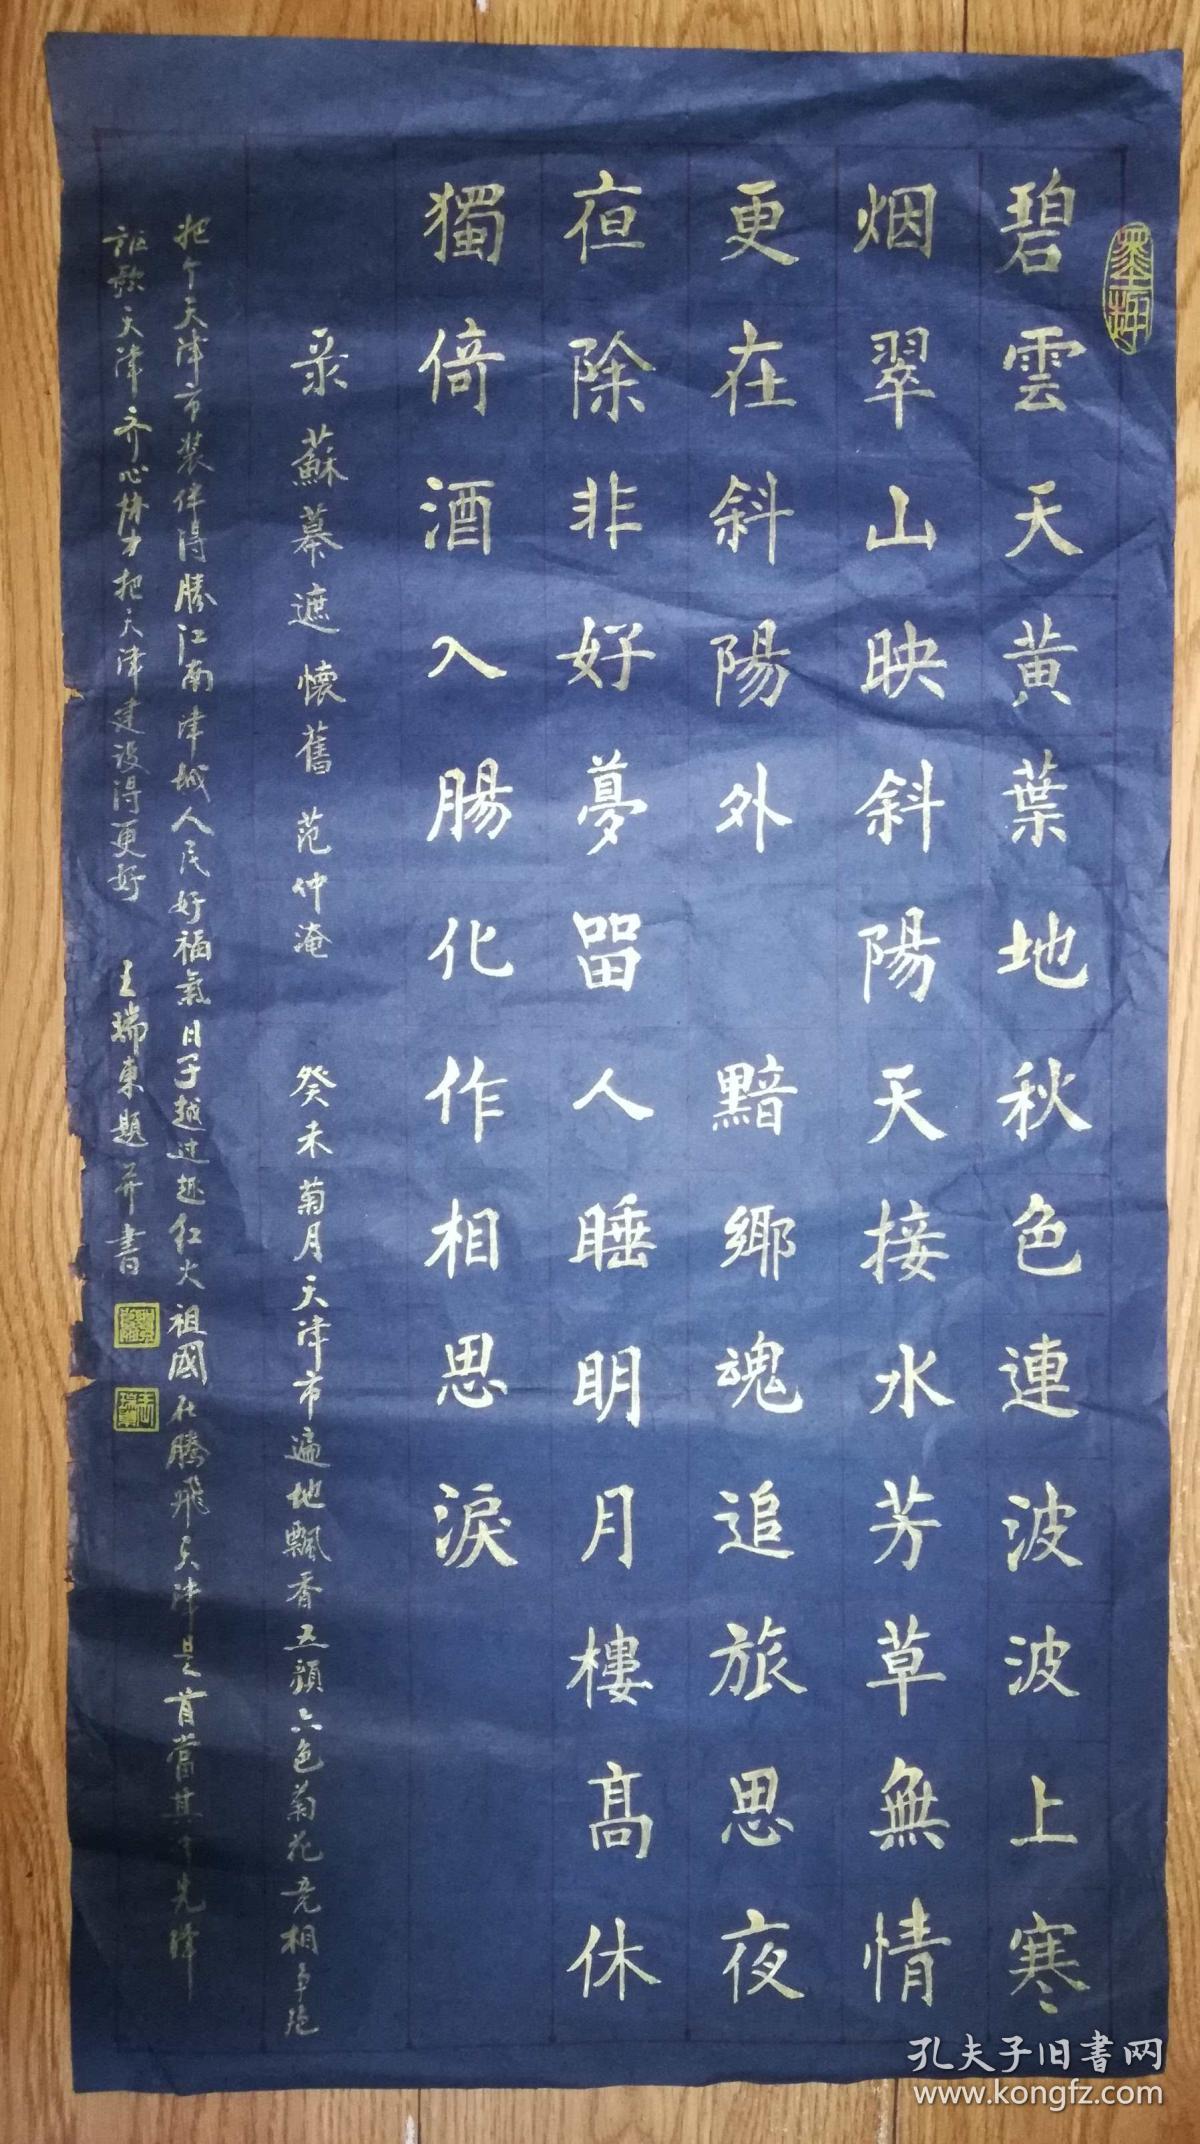 碧雲天黄葉地秋色連波波上寒
烟翠山映斜陽天接水芳草無情
更在斜陽外 黯鄉魂追旅思夜
夜除非好夢留人睡明月樓高休
獨倚酒入腸化作相思淚
录蘇幕遮懷舊 范仲淹 癸未菊月天津市遍地飄香五顏六色菊花竞相争艳
把个天津市装伴得勝江南津城人民好福氣日子越过越红火祖國在騰飛天津是首當其先鋒
謳歌天津齐心协力把天津建设得更好 王瑞東题并書
孔夫子旧書网
www.kongfz.com